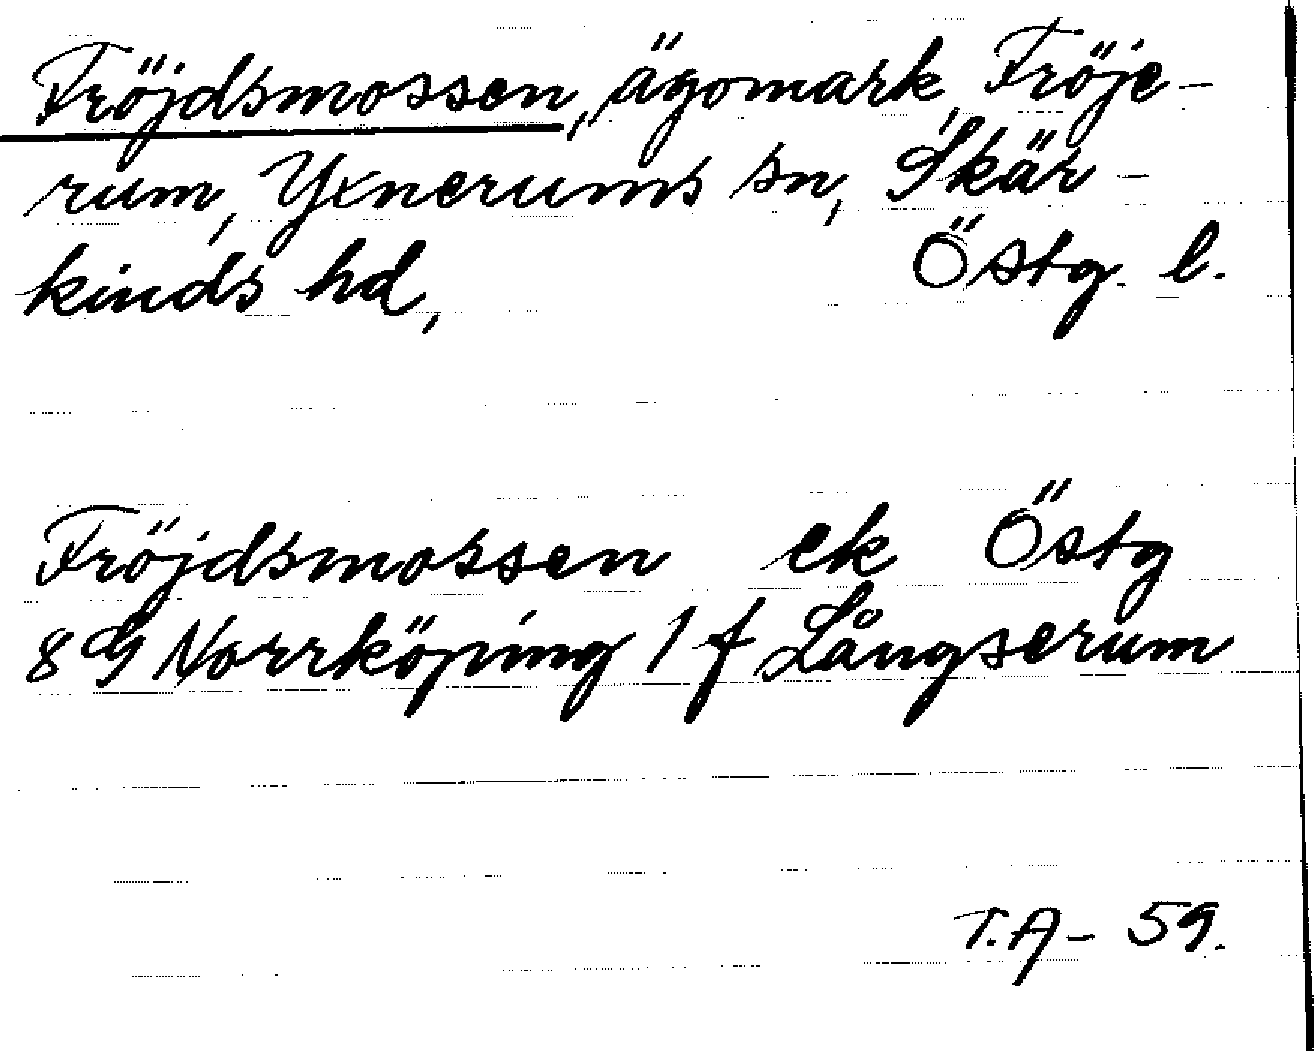 Fröjdsmossen, ägomark, Fröje-
rum, Yxnerums sn, Skär-
kinds hd, Östg. l.
Fröjdsmossen ek Östg
8G Norrköping 1 f Långserum
T.A - 59.